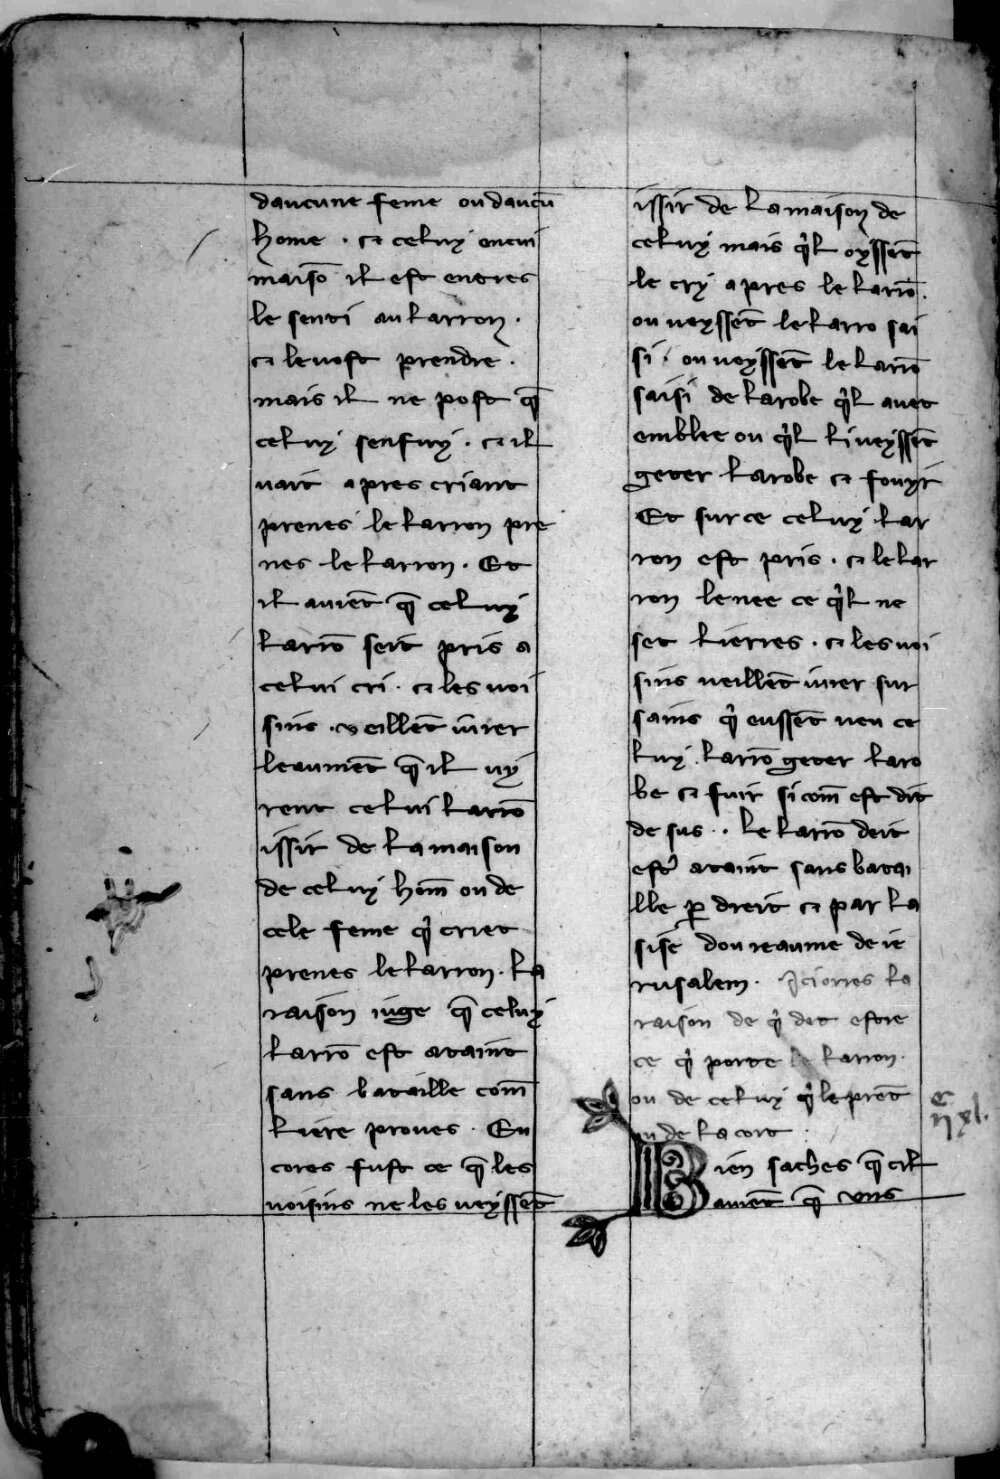 daucune feme ou daucũ
home . ⁊ celuy en cui
maisõ il est entres
le senti au larron .
⁊ le vost prendre .
mais il ne post q̃
celuy senfuy . ⁊ il
vait apres criant
prenes le larron pre
nes le larron . Et
il auiẽt q̃ celuy
larrõ seit pris a
celui cri . ⁊ les voi
sins . veillẽt iurer
leaumẽt q̃ il uy
rent celui larrõ
issir de la maison
de celuy hom̃ ou de
cele feme q̓ criet
prenes le larron . la
raison iuge q̃ celuy
larrõ est ataint
sans bataille com̃
liere proues . En
cores fust ce q̃ les
voisins ne les veyssẽt
issir de la maison de
celuy mais q̓l oyssẽt
le cry apres le larrõ .
ou veyssẽt le larro sai
si . ou veyssẽt le larrõ
saisi de la robe q̓l auet
emblee ou q̓l li veyssẽt
geter la robe ⁊ fouyr
Et sur ce celuy lar
ron est pris . ⁊ le lar
ron le nee ce q̓l ne
set lierres . ⁊ les voi
sins veillẽt iurer sur
sains q̓ eussẽt veu ce
luy . larrõ geter la ro
be ⁊ fuir si com̃ est dit
de sus . . le larrõ deit
estr̓ ataint sans batai
lle ꝑ dreit ⁊ par la
sise dou reaume de ie
rusalem . Ici orres la
raison de q̓ det estre
ce q̓ porte le larron .
ou de celuy q̓ le prẽt
ou de la cort .
Bien saches q̃ cil
auiẽt q̃ vns